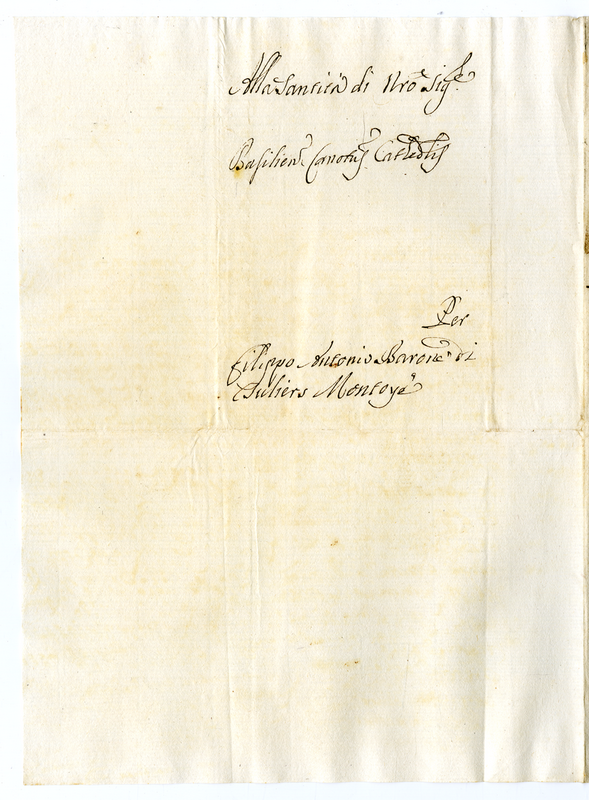 Alla Santità di Nro Sige
Basilien Canotus Cathedlis
Per
Filippo Antonio Barone di
Juliers Montoye